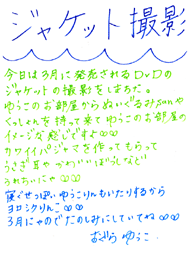 ジャケット撮影
今日は3月に発売されるDVDの
ジャケットの撮影をしました。
ゆうこのお部屋からぬいぐるみちゃんや
くっしょんを持って来てゆうこのお部屋の
イメージな感じですょ∞
カワイイパジャマを作ってもらって
うさぎ耳や かわいい ぼうしなど
うれちぃにゃ∞
寝ぐせっぽいゆうこりんもいたりするから
ヨロシクりんこ∞
3月にゃのでたのしみにしていてね∞
おぐらゆうこ